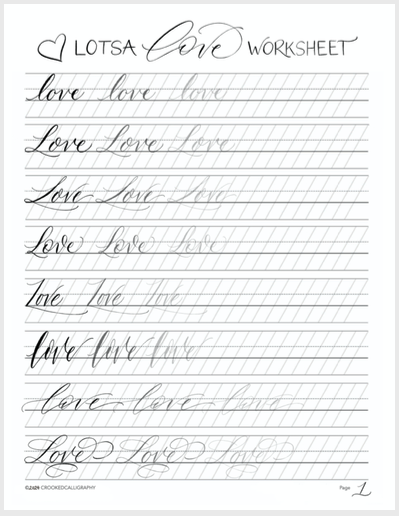 LOTSA love WORKSHEET
love love love
Love Love Love
Love Love Love
Love Love Love
Love Love Love
love love love
love love love
Love Love Love
©2019 CROOKEDCALLIGRAPHY Page: 1